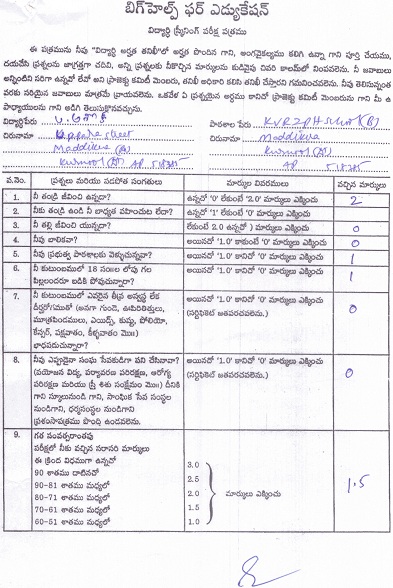 బిగ్‌హెల్ప్ ఫర్ ఎడ్యుకేషన్
విద్యార్థి స్క్రీనింగ్ పరీక్ష పత్రము
ఈ పత్రమును నీవు "విద్యార్థి అర్హత తనిఖీ"లో అర్హత పొందిన గాని, అంగవైకల్యము కలిగి ఉన్నా గాని పూర్తి చేయుము,
దయచేసి ప్రశ్నలను జాగ్రత్తగా చదివి, అన్ని ప్రశ్నలకు మార్కులను కుడివైపు చివరి కాలమ్‌లో నింపవలెను. నీ జవాబులు
అన్నింటిని సరిగా ఉన్నదో లేదో అని ప్రాజెక్టు కమిటీ మెంబరు, తనిఖీ అధికారి కలిసి తనిఖీ చేస్తారని గమనించవలెను. నీవు తెలిసున్నంత
వరకు సరియైన జవాబులు మాత్రమే వ్రాయవలెను. ఒకవేళ ఏ ప్రశ్నయైన అర్థము కానిచో ప్రాజెక్టు కమిటీ మెంబరును గాని మీ ఉ
పాధ్యాయులను గాని అడిగి తెలుసుకొనవచ్చును.
విద్యార్థిపేరు పాఠశాల పేరు KVR ZPH School (B)
చిరునామా street చిరునామా Maddikera
Maddikera (M) Kurnool (Dt)
Kurnool (Dt) AP 518385 AP 518385
వ.నెం. ప్రశ్నలు మరియు సదపోత సంగతులు మార్కుల వివరములు వచ్చిన మార్కులు
1. నీ తండ్రి జీవించి ఉన్నడా? ఉన్నదో '0' లేకుంటే '2.0' మార్కులు ఎక్కించు 2
2. నీకు తండ్రి ఉండి నీ బాధ్యత వహించుట లేదా? ఉన్నదో '1' లేకుంటే '0' మార్కులు ఎక్కించు
3. నీ తల్లి జీవించి యున్నదా? లేకుంటే 2.0 ఉన్నచో ) మార్కులు ఎక్కించు 0
4. నీవు బాలికవా? అయినచో '1.0' కాకుంటే '0' మార్కులు ఎక్కించు 0
5. నీవు ప్రభుత్వ పాఠశాలకు వెళ్ళుచున్నవా? అయినచో '1.0' కానిచో '0' మార్కులు ఎక్కించు 1
6. నీ కుటుంబములో 18 సంజల లోపు గల అయినచో '1.0' కానిచో '0' మార్కులు ఎక్కించు 1
పిల్లలందరూ బడికి పోవుచున్నారా?
7. నీ కుటుంబములో ఎవరైన తీవ్ర అస్వస్థ లేక అయినచో '1.0' కానిచో '0' మార్కులు ఎక్కించు 0
దీర్ఘరోగముతో (అనగా గుండె, ఊపిరితిత్తులు, (సర్టిఫికెట్ జతపరచవలెను.)
మూత్రపిండములు, ఎయిడ్స్, కుష్ఠు, పోలియో,
కేన్సర్, పక్షవాతం, కీళ్ళవాతం మొ॥)
భాధపడుచున్నారా?
8. నీవు ఎప్పుడైనా సంఘ సేవకుడిగా పని చేసినావా? అయినచో '1.0' కానిచో '0' మార్కులు ఎక్కించు 0
(వయోజన విద్య, పర్యావరణ పరిరక్షణ, ఆరోగ్య (సర్టిఫికెట్ జతపరచవలెను.)
పరిరక్షణ మరియు స్త్రీ శిశు సంక్షేమం మొ॥) దీనికి
గాని స్కూలునుండి గాని, సాంఘిక సేవ సంస్థల
నుండిగాని, ధర్మసంస్థల నుండిగాని
ప్రశంసాపత్రము పొంది ఉండవలెను.
9. గత సంవత్సరాంతపు
పరీక్షలో నీకు వచ్చిన సరాసరి మార్కులు
ఈ క్రింద విధముగా ఉన్నచో
90 శాతము దాటినచో 3.0
90-81 శాతము మధ్యలో 2.5
80-71 శాతము మధ్యలో 2.0 మార్కులు ఎక్కించు 1.5
70-61 శాతము మధ్యలో 1.5
60-51 శాతము మధ్యలో 1.0